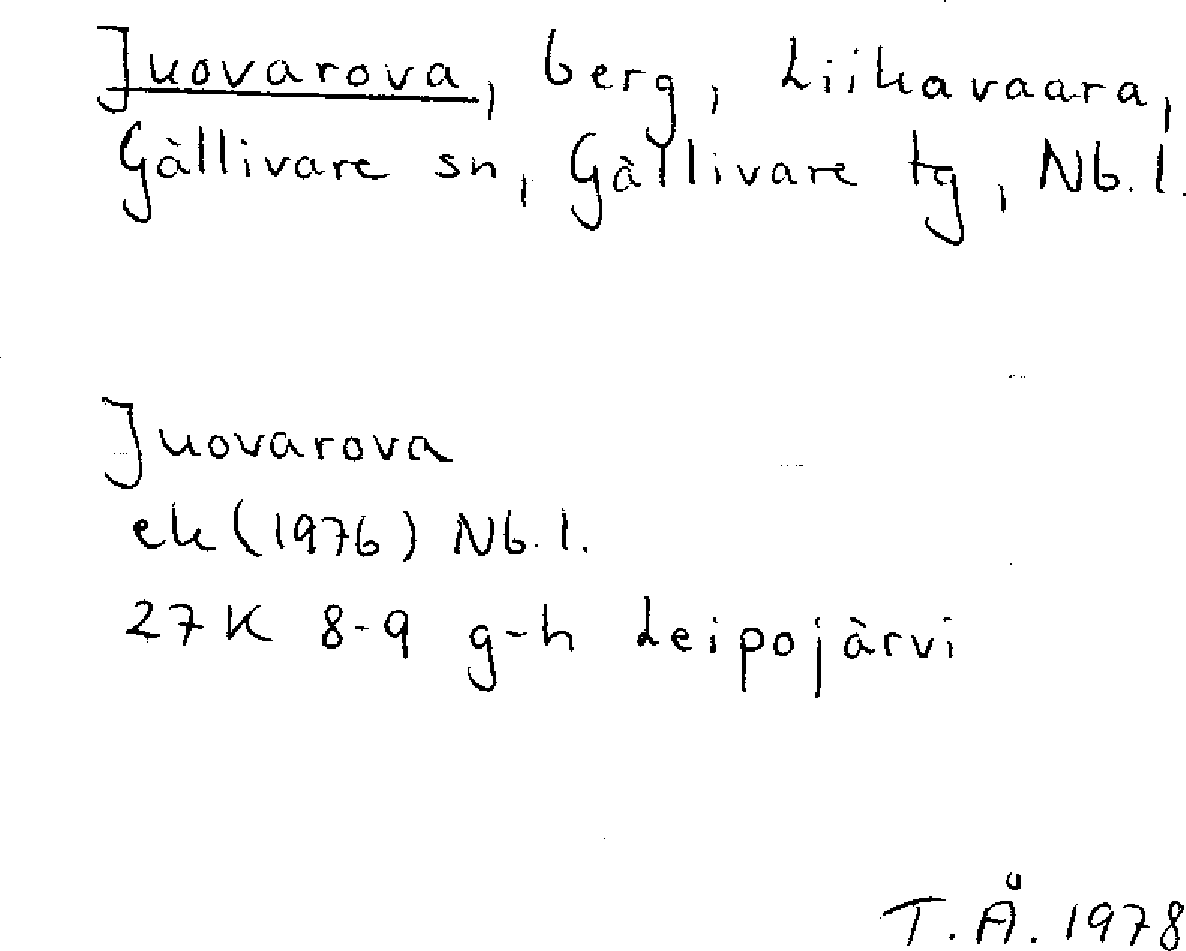 Juovarova, berg, Liikavaara,
Gällivare sn, Gällivare tg, Nb. l.
Juovarova
ek (1976) Nb. l.
27 K 8-9 g-h Leipojärvi
T. Å. 1978